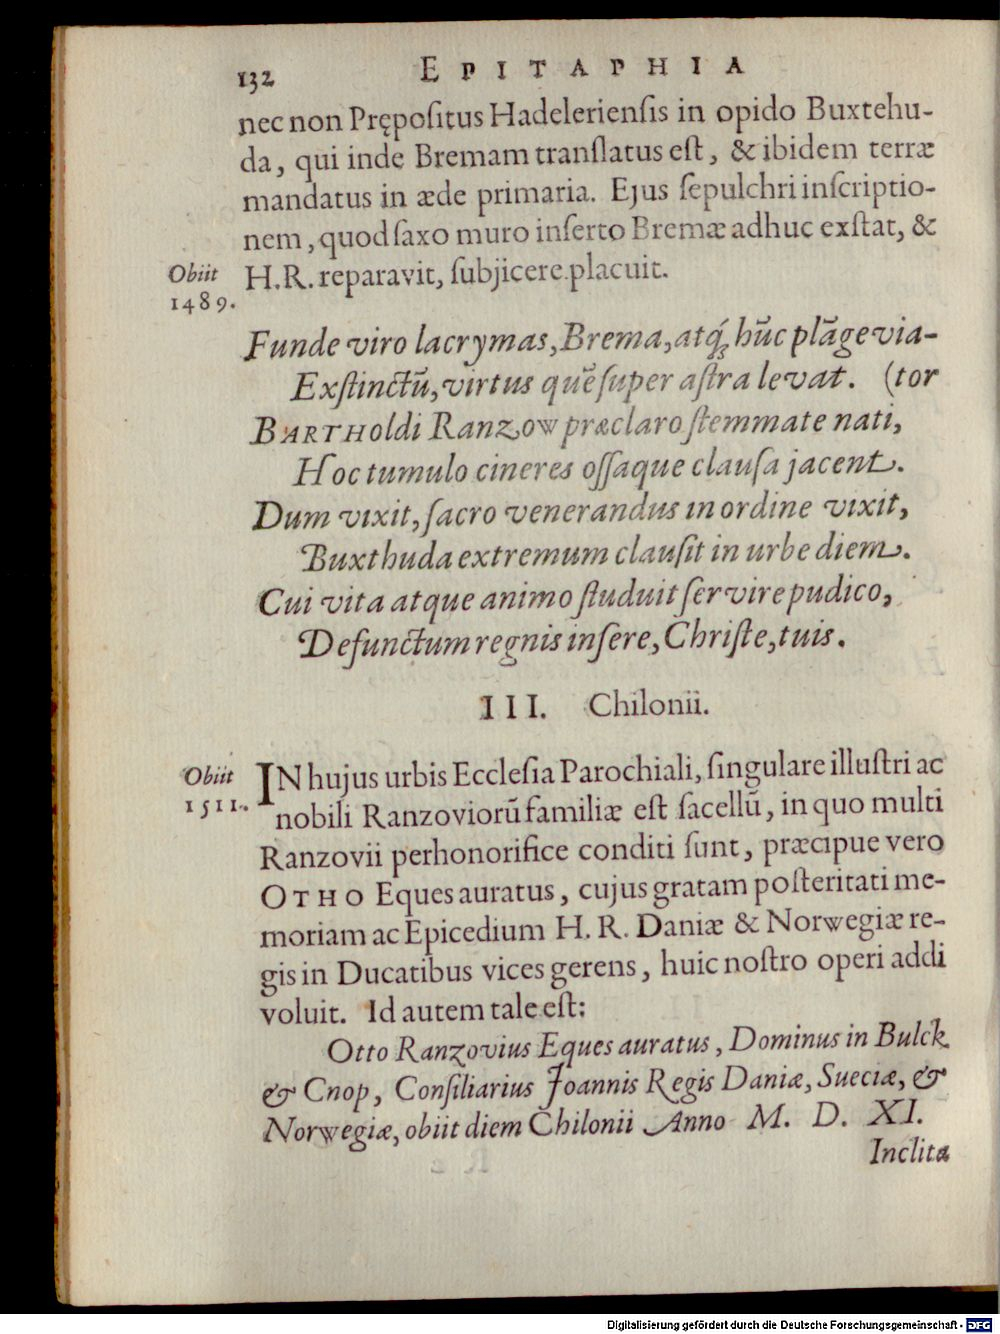 132 EPITAPHIA
nec non Prępoſitus Hadelerienſis in opido Buxtehu-
da, qui inde Bremam tranſlatus eſt, & ibidem terræ
mandatus in æde primaria. Ejus ſepulchri inſcriptio-
nem, quod ſaxo muro inſerto Bremæ adhuc exſtat, &
Obiit
1489.
H.R. reparavit, ſubjicere placuit.
Funde viro lacrymas, Brema, atq́ꝫ hūc plāge via-
Exſtinctū, virtus quē ſuper aſtra levat. (tor
BARTHoldi Ranzow præclaro ſtemmate nati,
Hoc tumulo cineres oſſaque clauſa jacent.
Dum vixit, ſacro venerandus in ordine vixit,
Buxthuda extremum clauſit in urbe diem.
Cui vita atque animo ſtuduit ſervire pudico,
Defunctum regnis inſere, Chriſte, tuis.
III. Chilonii.
Obiit
1511.
IN hujus urbis Eccleſia Parochiali, ſingulare illuſtri ac
nobili Ranzoviorū familiæ eſt ſacellū, in quo multi
Ranzovii perhonorifice conditi ſunt, præcipue vero
OTHO Eques auratus, cujus gratam poſteritati me-
moriam ac Epicedium H. R. Daniæ & Norwegiæ re-
gis in Ducatibus vices gerens, huic noſtro operi addi
voluit. Id autem tale eſt:
Otto Ranzovius Eques auratus, Dominus in Bulck
& Cnop, Conſiliarius Joannis Regis Daniæ, Sueciæ, &
Norwegiæ, obiit diem Chilonii Anno M. D. XI.
Inclita
Digitalisierung gefördert durch die Deutsche Forschungsgemeinschaft - DFG